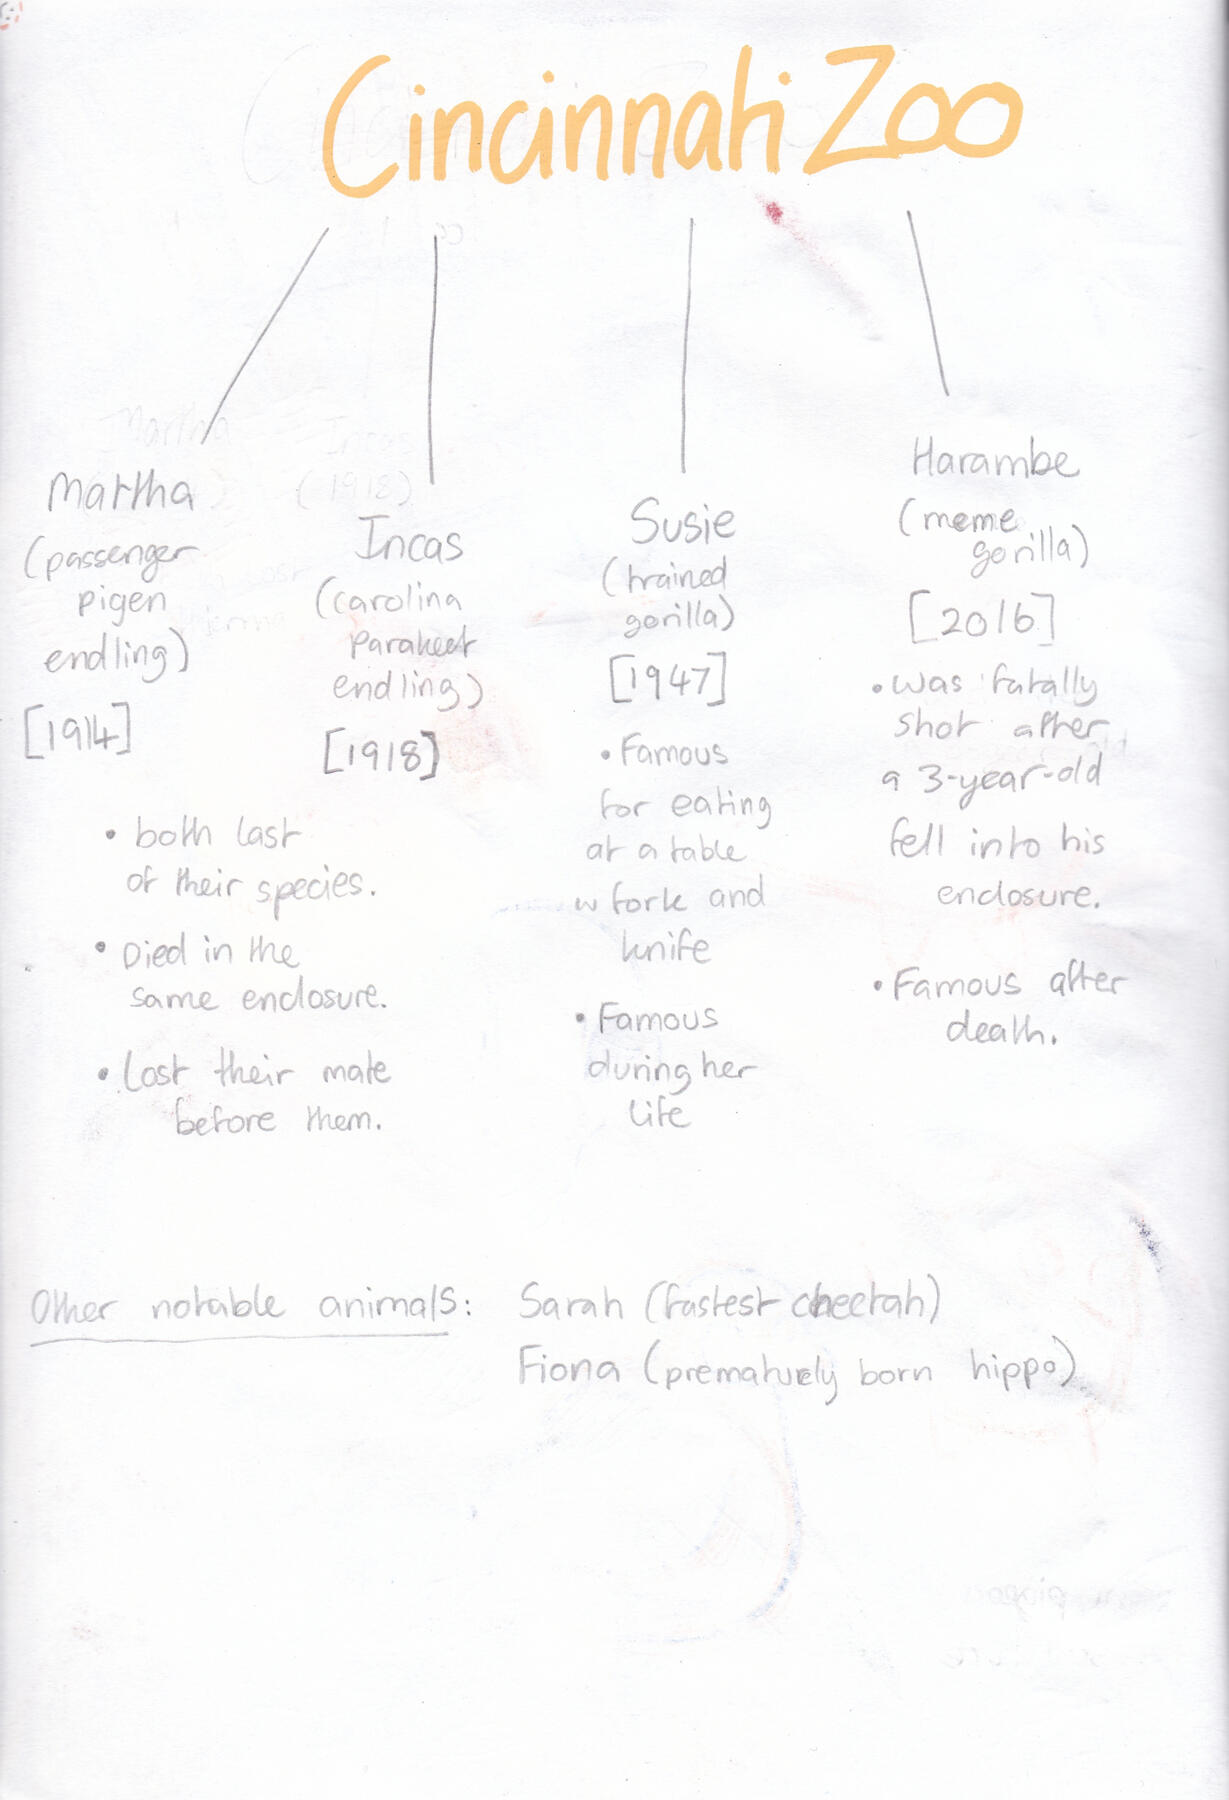 Cincinnati Zoo
Martha
(passenger
pigen
endling)
[1914]
Incas
(carolina
parakeet
endling)
[1918]
• both last
of their species.
• Died in the
same enclosure.
• Lost their mate
before them.
Susie
(trained
gorilla)
[1947]
• Famous
for eating
at a table
w fork and
knife
• Famous
during her
life
Harambe
(meme
gorilla)
[2016]
• was fatally
shot after
a 3-year-old
fell into his
enclosure.
• Famous after
death.
Other notable animals: Sarah (fastest cheetah)
Fiona (prematurely born hippo)